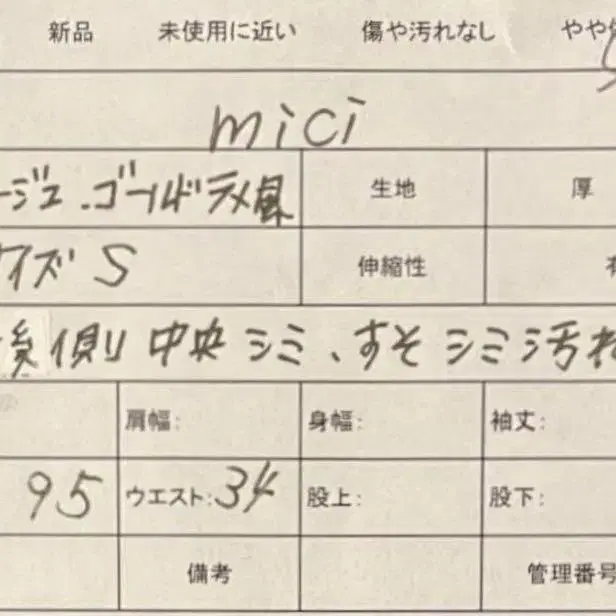 新品 未使用に近い 傷や汚れなし やや
mici
ージュ.ゴールドラメ風 生地 厚
サイズ S 伸縮性 有
後側 中央シミ、すそシミ汚れ
肩幅: 身幅: 袖丈:
95 ウエスト:34 股上: 股下:
備考 管理番号